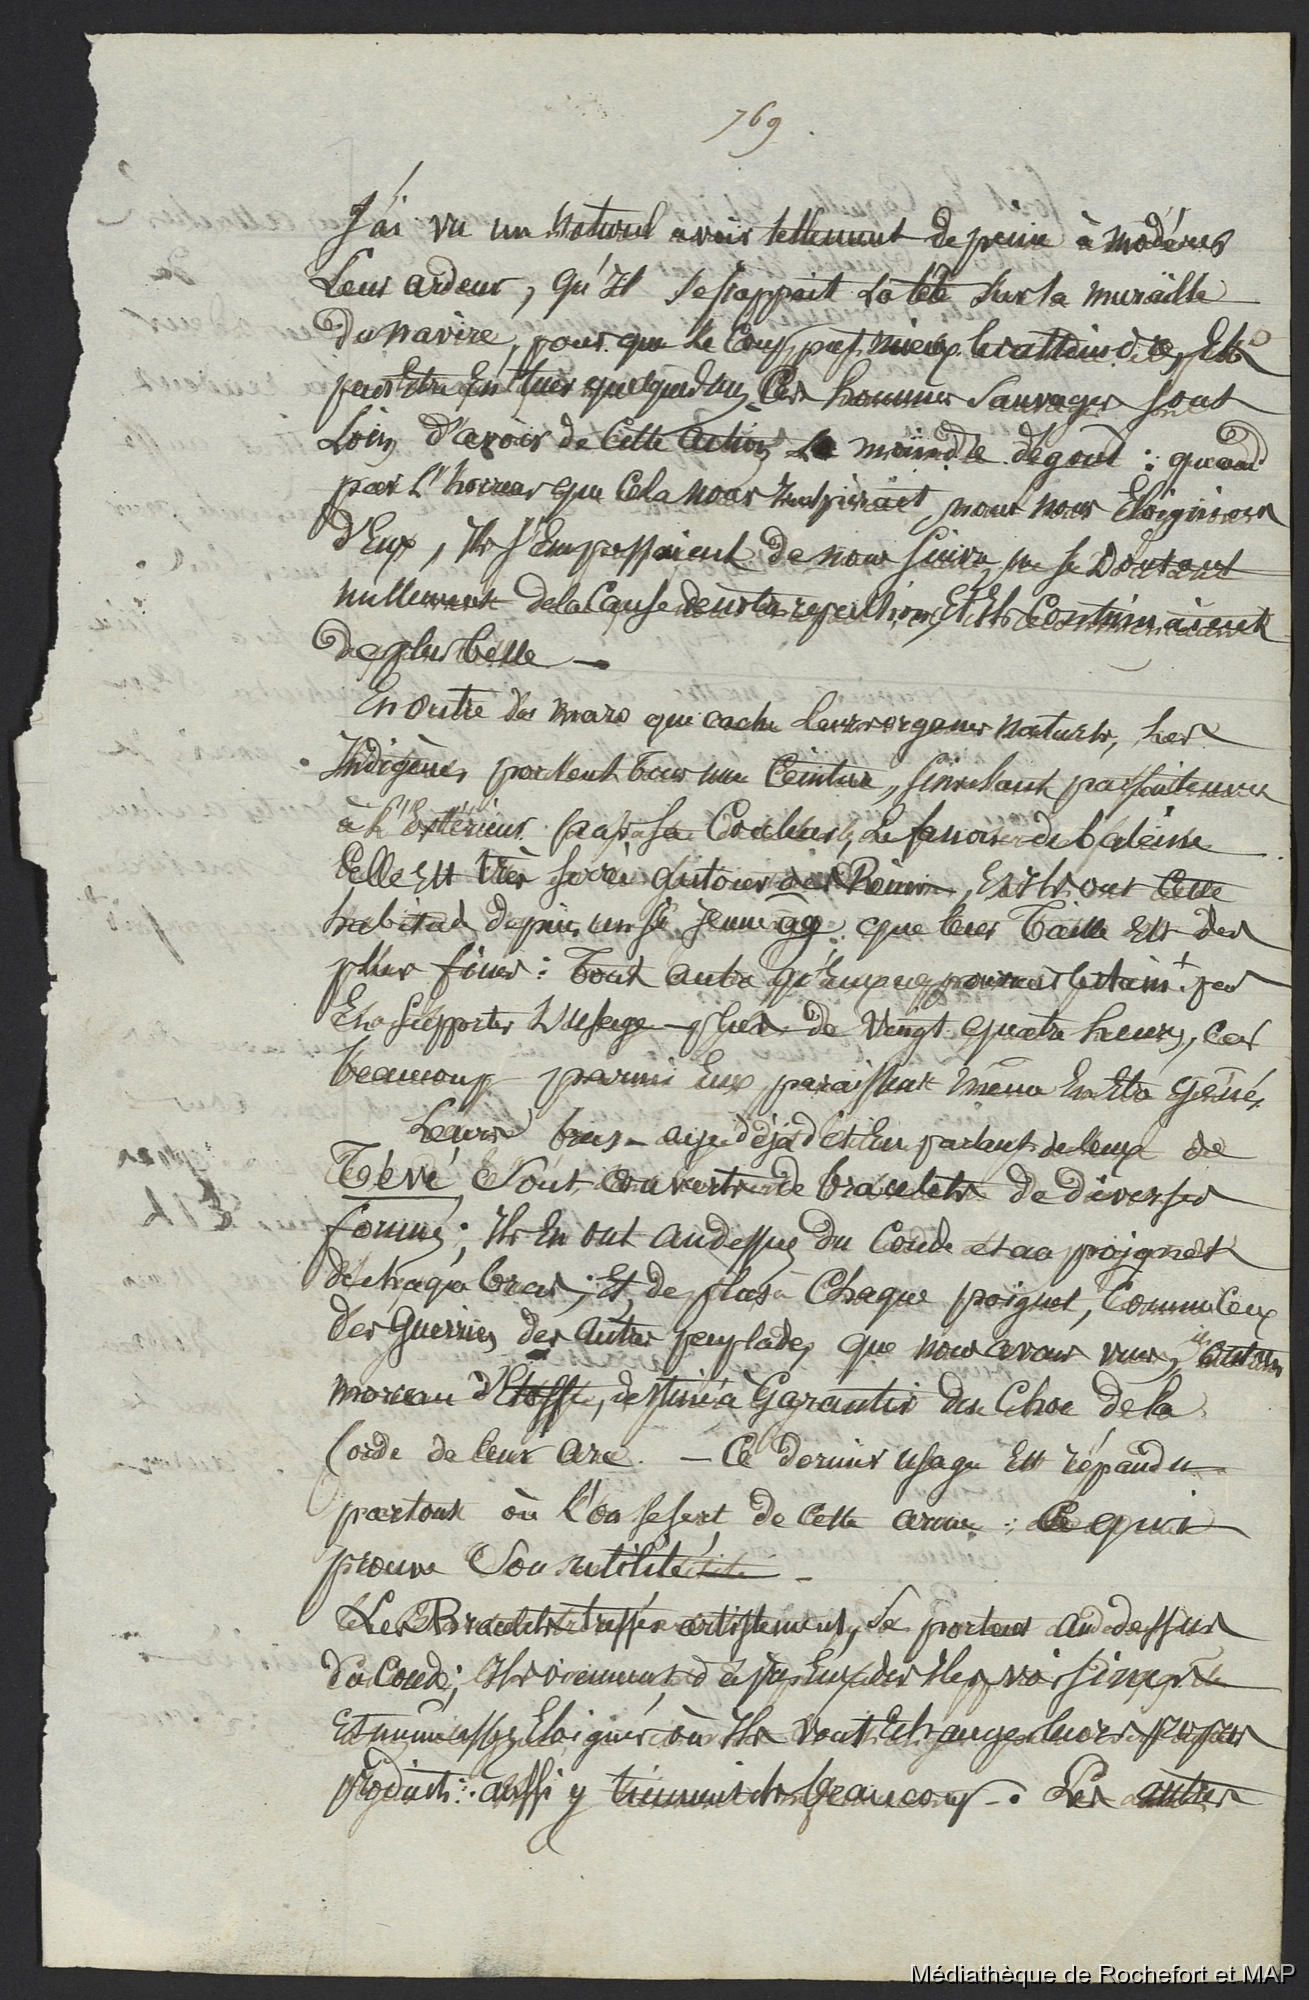 769.
J'ai vu un naturel avoir tellement de peine à modérer
Leur ardeur, qu'Il se frappait La tête sur la muraille
Du navire, pour que le Coup put mieux les atteindre, Et
peut Etre En tuer quelqu'un, Ces hommes Sauvages sont
Loin d'avoir de Cette action Le moindre dégout : quand
par L'horreur que Cela nous Inspirait, nous nous Eloignions
d'Eux, Ils s'Empressaient de nous suivre, ne se Doutant
nullement de la Cause de notre repulsion, Et Ils Continuaient
de plus belle —
En outre du maro qui cache Leurs organes naturels, Les
Indigènes portent Tous une Ceinture, simulant parfaitement
à L'Extérieur par sa Couleur, Le fanon de baleine
Celle Est très serrée autour des Reins, Et Ils ont Cette
habitude depuis un si jeune age que leur Taille Est des
plus fines : Tout autre qu'Eux ne pourrait certain.t pas
En supporter L'usage plus de Vingt quatre heures, car
beaucoup parmi Eux paraissent même En Etre gênés.
Leurs bras, ai-je déjà dit En parlant de ceux de
Tévé, Sont couverts de bracelets de diverses
formes ; Ils En ont au dessus du Coude et au poignet
de chaque bras ; Et de plus à Chaque poignet, Comme Ceux
Des Guerriers des autres peuplades que nous avons vues, ils ont un
morceau d'Etoffe, destiné à Garantir du Choc de la
Corde de leur arc. — Ce dernier usage Est répandu
partout où l'on se sert de Cette arme : Ce qui
prouve Son utilité —
Les Bracelets tressés artistement, se portent au dessus
du Coude ; Ils viennent des Iles voisines
Et même assez Eloignées où Ils vont Echanger leurs propres
produits : aussi y tiennent Ils beaucoup. Les autres
Médiathèque de Rochefort et MAP